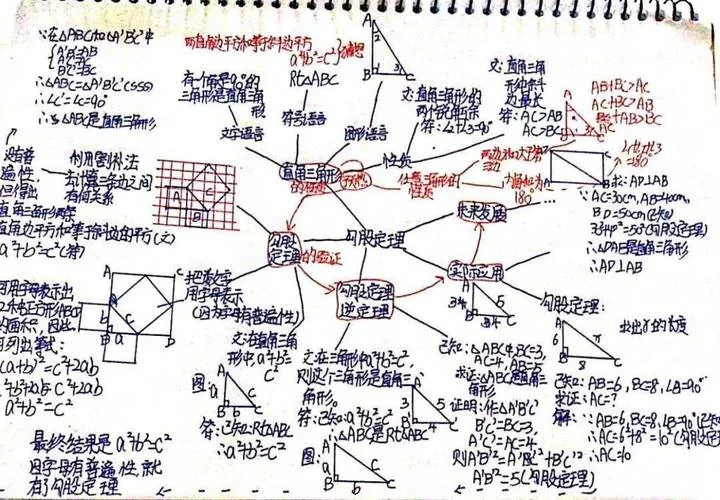 ∵在△ABC和△A'B'C'中
A'B'=AB
B'C'=BC
∴△ABC≌△A'B'C'(SSS)
∴∠C'=∠C=90°
∴△ABC是直角三角形
两直角边平方和等于斜边平方
a²+b²=c²
有一个角是90°的
三角形是直角三角
形
文字语言
Rt△ABC
符号语言
图形语言
文:直角三角形的
两个锐角互余
符:∠1+∠2=90°
性质
文:直角三角
形中斜
边最长
符:AC>AB
AC>BC
AB+BC>AC
AC+BC>AB
AC+AB>BC
直角三角形
的性质
任意三角形的
性质
两边之和大于第
三边
内角和为
180°
∠1+∠2+∠3
=180°
利用割补法
去计算三条边之间
有何关系
直角三角形两条
直角边平方和等于斜边的平方(文)
a²+b²=c²(符)
勾股
定理
的验证
勾股定理
未来发展
实际应用
勾股定理
逆定理
求:AD⊥AB
∵AC=30cm, AB=40cm,
BD=50cm(已知)
30²+40²=50²(勾股定理)
∴△DAB是直角三角形
∴AD⊥AB
把数字
用字母表示
(因为字母有普遍性)
可用字母表示出
的面积,因此
可列出等式:
(a+b)²=c²+2ab
a²+b²+2ab=c²+2ab
a²+b²=c²
最终结果是a²+b²=c²
因字母有普遍性,就
有了勾股定理
文:在直角三角
形中a²+b²=
c²
图:
符:已知:Rt△ABC
∴a²+b²=c²
文:在三角形中a²+b²=c²,
则这个三角形是直角三
角形。
符:已知:a²+b²=c²
∴△ABC是Rt△ABC
图:
已知:△ABC中,BC=3,
AC=4, AB=5
求证:△ABC是直角三
角形
证明:作△A'B'C'
B'C'=BC=3,
A'C'=AC=4
则A'B'²=A'C'²+B'C'²
A'B'=5(勾股定理)
勾股定理:
求出r的长度
已知:AB=6, BC=8, ∠B=90°
求证:AC=?
解:∵AB=6, BC=8, ∠B=90°(已知)
∴AC²=6²+8²=10²(勾股定理)
∴AC=10